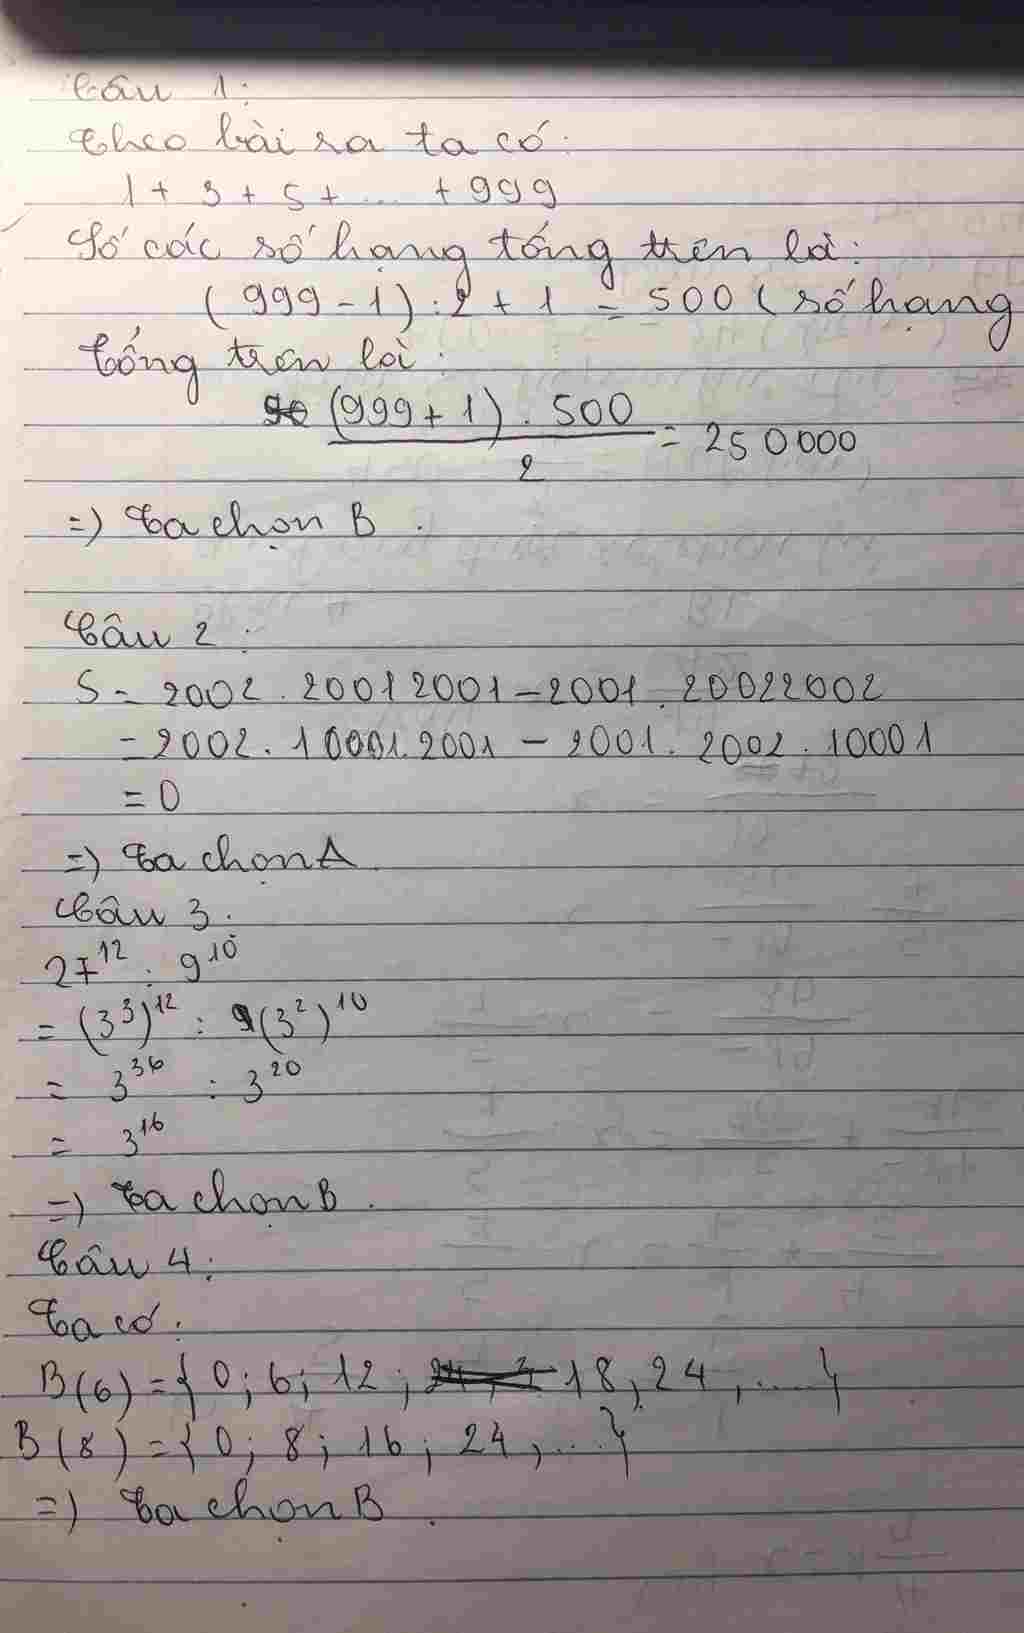 Câu 1:
Theo bài ra ta có:
1 + 3 + 5 + ... + 999
Số các số hạng tổng trên là:
(999 - 1) : 2 + 1 = 500 (số hạng
Tổng trên là:
(999 + 1) . 500
2
= 250000
=) Ta chọn B.
Câu 2:
S = 2002 . 20012001 - 2001 . 20022002
= 2002 . 10001. 2001 - 2001. 2002 . 10001
= 0
=) Ta chọn A
Câu 3.
27^12 : 9^10
= (3^3)^12 : (3^2)^10
= 3^36 : 3^20
= 3^16
=) Ta chọn B.
Câu 4:
Ta có:
B(6) = { 0; 6; 12; 18, 24, .... }
B(8) = { 0; 8; 16; 24, ... }
=) Ta chọn B.